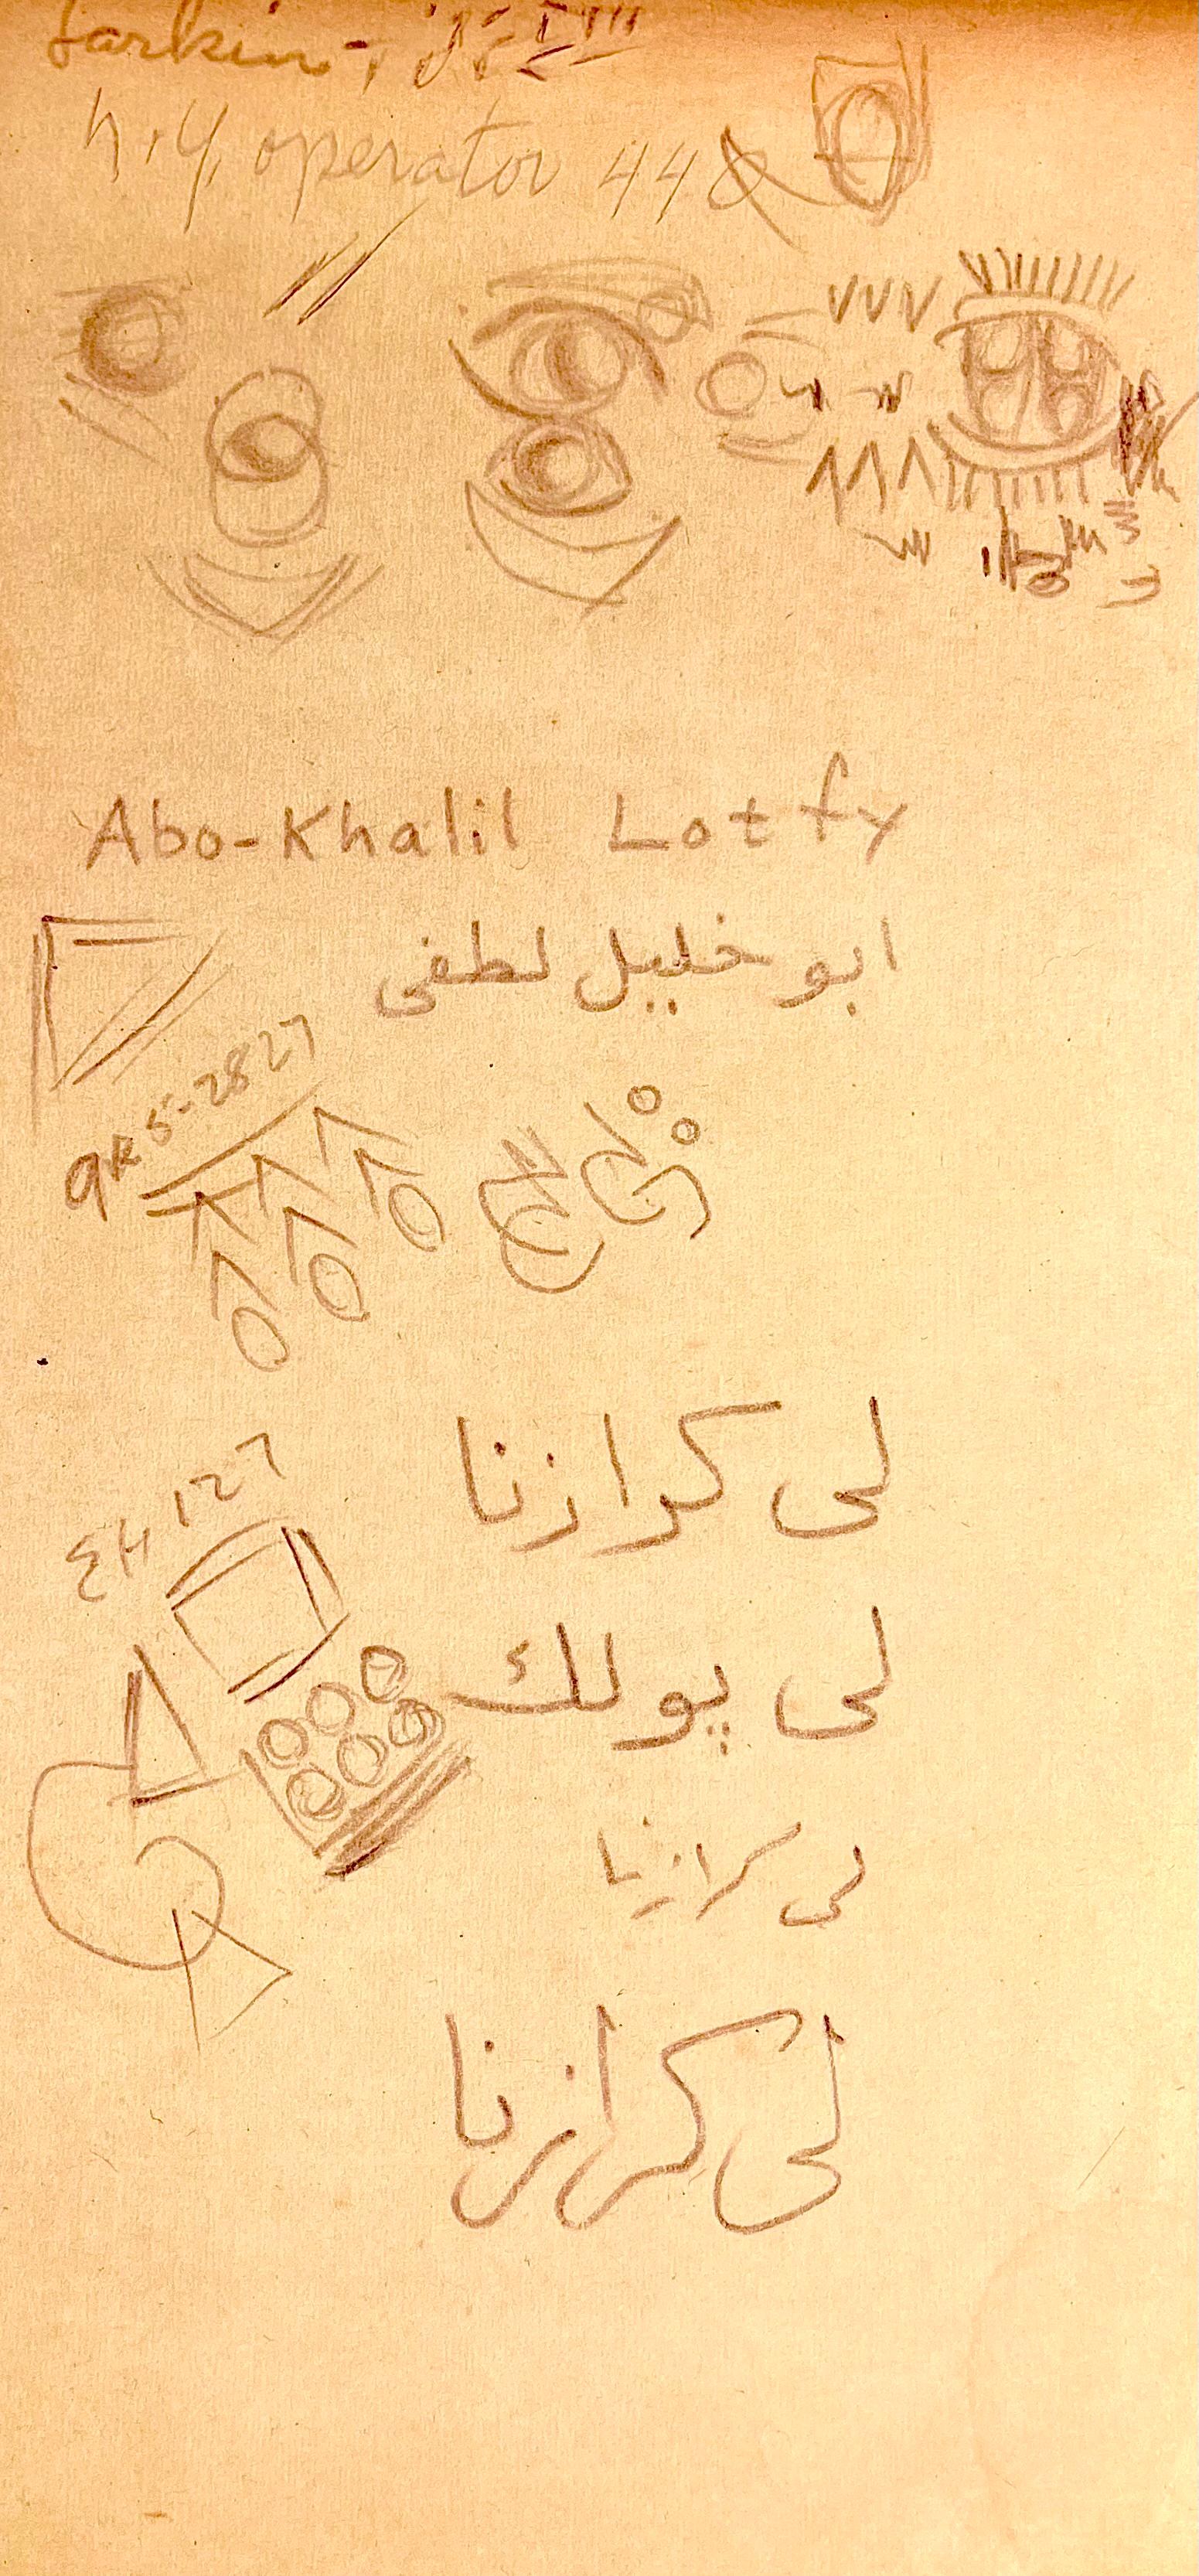 Larkin
N.Y. operator 44
Abo-Khalil Lotfy
ابو خليل لطفى
GR 5-2827
لى كرازنا
EH 127
لى بولك
لى كرازنا
لى كرازنا